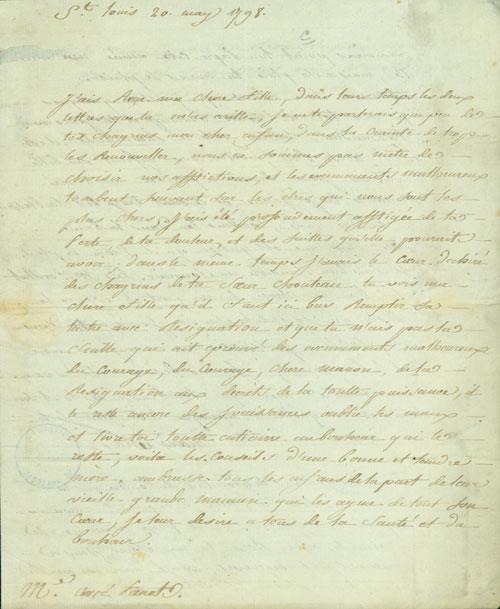 St. louis 20. may 1798.
J'ais Reçu ma chere fille, dans leurs temps les deux
lettres que tu m'as écritte, je ne te parlerais que peu de
tes chagrins mon cher enfan, dans la crainte de trop
les Renouveller, nous ne sommes pas mètre de
choisir nos afflictions, et les evennements malheureux
tombent souvant sur les êtres qui nous sont les
plus chers, J'ais été profondement affligée de ta
Perte, de ta douleur, et des suittes qu'elle pourrait
avoir, dans le même temps J'avais le Cœur dechiré
des chagrins de ta Sœur chouteau tu vois ma
chere fille qu'il faut ici bas Remplir sa
tache avec Resignation et que tu n'ais pas la
Seulle qui ait eprouvé des evennements malheureux
du Courage, du Courage, chere manon, de la
Resignation aux decrets de la toutte puissance, il
te reste ancore des Jouissances oublie tes maux
et livre toi toutte entierre au bonheur qui te
reste, voila les conseils d'une bonne et tendre
mère, ambrasse tous tes enfans de la part de leur
vieille grande maman qui les ayme de tout son
Cœur, Je leur desire a tous de la Santé et du
bonheur.
Me. cerré